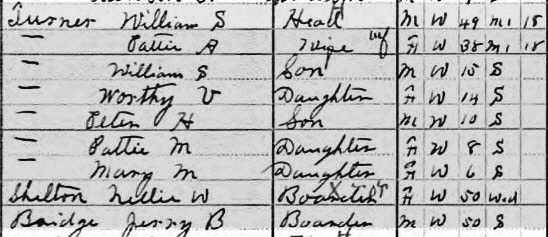 Turner William S Head M W 49 M1 18
— Pattie A Wife F W 38 M1 18
— William S Son M W 15 S
— Worthy V Daughter F W 14 S
— Peter H Son M W 10 S
— Pattie M Daughter F W 8 S
— Mary M Daughter F W 6 S
Shelton Nellie W F W 50 Wed
Bridge Jenny B Boarder M W 50 S